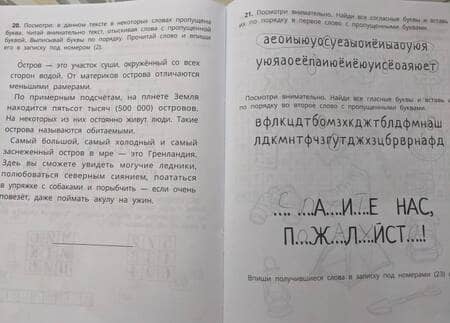 20. Посмотри: в данном тексте в некоторых словах пропущена
буква. Читай внимательно текст, отыскивая слова с пропущенной
буквой. Выписывай буквы по порядку. Прочитай слово и впиши
его в записку под номером (2).
Остров — это участок суши, окружённый со всех
сторон водой. От материков острова отличаются
меньшими рамерами.
По примерным подсчётам, на плнете Земля
находится пятьсот тысяч (500 000) островов.
На некоторых из них постоянно живут люди. Такие
острова называются обитаемыми.
Самый большой, самый холодный и самый
заснеженный остров в мре — это Гренландия.
Здеь вы сможете увидеть могучие ледники,
полюбоваться северным сиянием, поататься
в упряжке с собаками и порыбчить — если очень
повезёт, даже поймать акулу на ужин.
21. Посмотри внимательно. Найди все согласные буквы и вставь
их по порядку в первое слово с пропущенными буквами.
аеоиыюуосуеаыоиёиыаоуюя
уюяаоеёпаиюёиёюуисёоаяюет
Посмотри внимательно. Найди все гласные буквы и вставь
по порядку во второе слово с пропущенными буквами.
вфлкцдтбомзхкджтблдфмнаш
лдкмнтфчзгутджхзцбрврнафд
.... ....А....И....Е НАС,
П....Ж....Л....ЙСТ....!
Впиши получившиеся слова в записку под номерами (23)